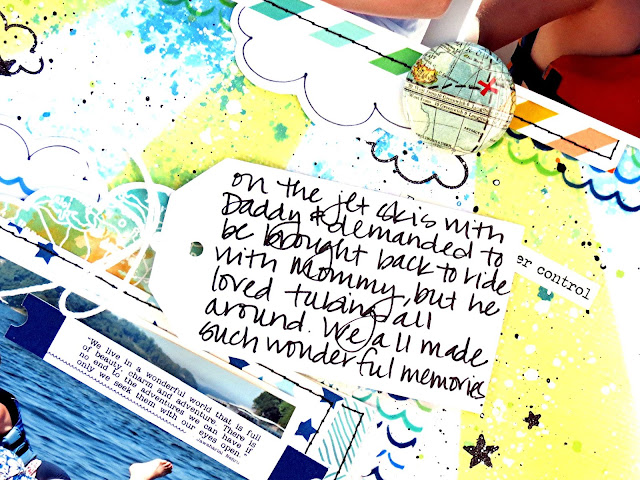 on the jet skis with
Daddy & demanded to
be brought back to ride
with Mommy, but he
loved tubing all
around. We all made
such wonderful memories
er control
"We live in a wonderful world that is full
of beauty, charm and adventure. There is
no end to the adventures we can have if
only we seek them with our eyes open.